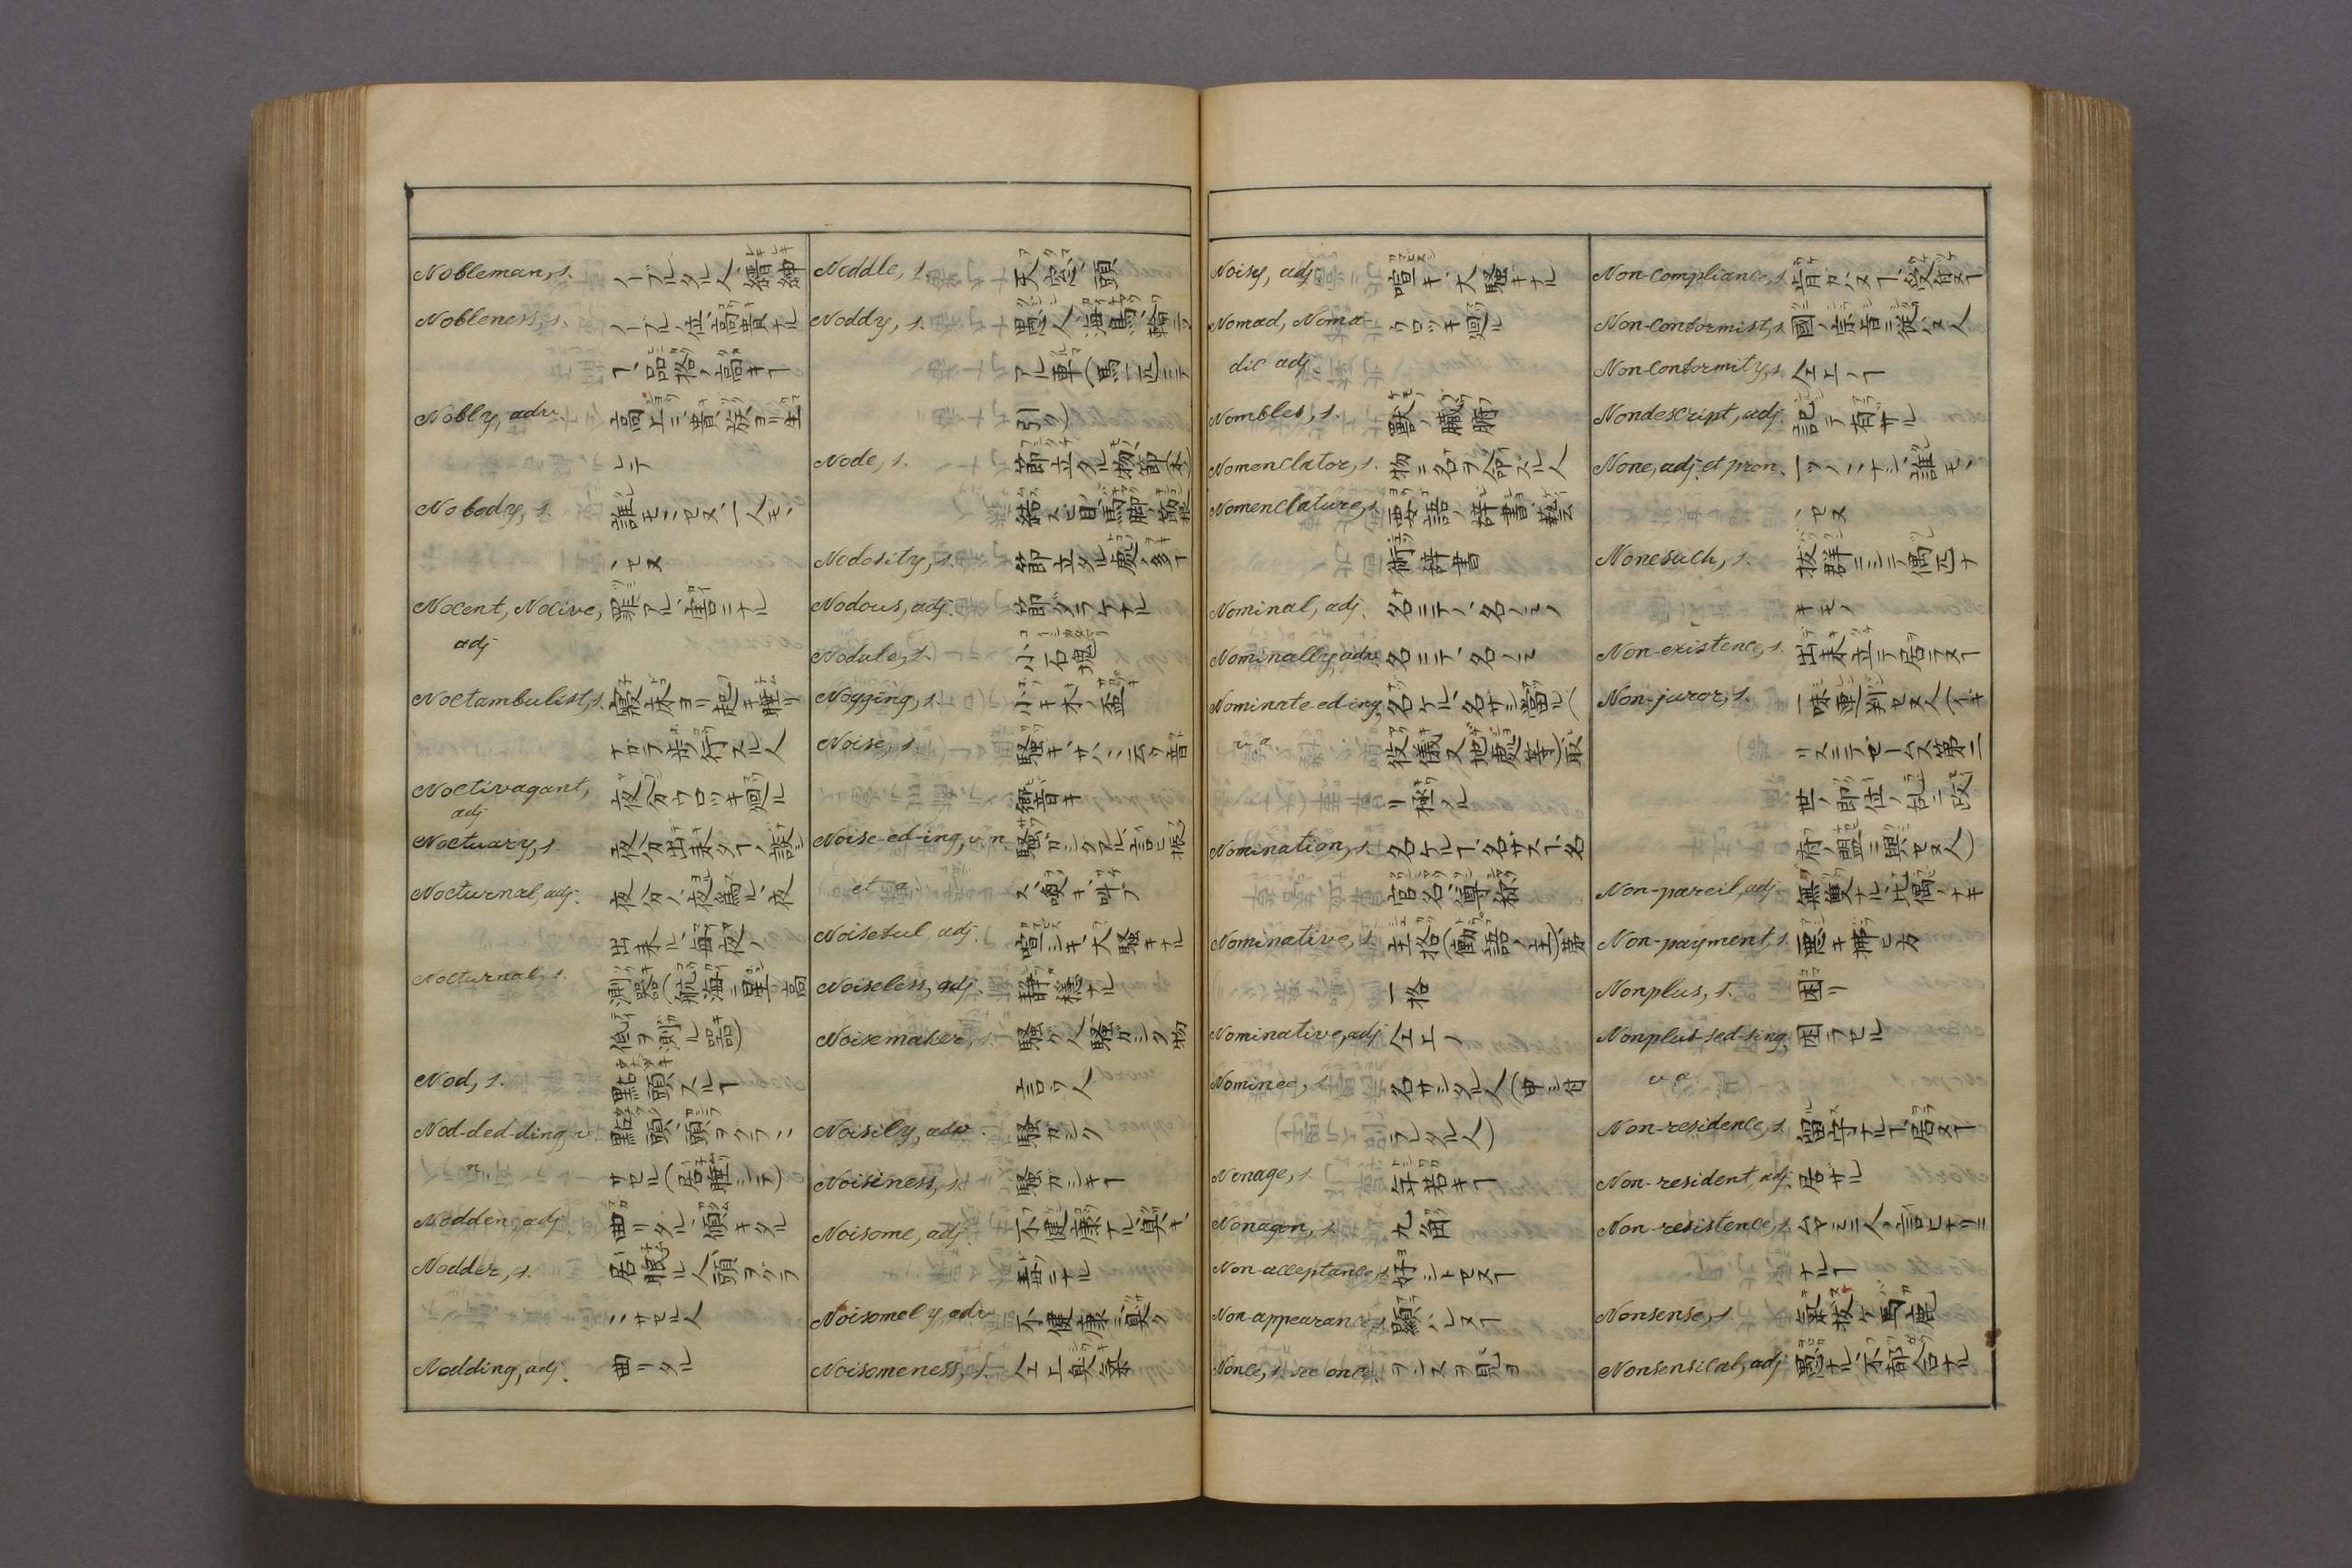 Nobleman, s. ノーブルタル人、縉紳
Nobleness, s. ノーブルノ位、高貴ナル
ヿ、品格ノ高キヿ
Nobly, adv. 高上ニ、貴族ヨリ生
レテ
Nobody, s. 誰モ〻セヌ、一人モ、
〻セヌ
Nocent, Nocive, 罪アル、害ニナル
adj
Noctambulist, s. 寢床ヨリ起キ睡リ
ナガラ歩行スル人
Noctivagant, 夜分ウロツキ廻ル
adj
Noctuary, s. 夜分出来タヿノ誌
Nocturnal, adj. 夜分ノ、夜為ル、夜
出来ル、毎夜ノ
Nocturnal, s. 測器(航海ニ星ノ高
低ヲ測ル器)
Nod, s. 點頭スルヿ
Nod-ded-ding, v. 點頭、頭ヲグラ〻
n サセル(居睡シテ)
Nodden, adj. 曲リタル、傾キタル
Nodder, s. 居眠ル人、頭ヲグラ
〻サセル人
Nodding, adj. 曲リタル
Noddle, s. 天窓、頭
Noddy, s. 愚人、海鳥、輪ニツ
アル車(馬一匹ニテ
引ク)
Node, s. 節立タル物、節(木)
結ス
Nodosity, s. 節立タル處ノ多イ
Nodous, adj. 節ダラケナル
Nodule, s. 小石塊
Nogging, s. 小キ木ノ盃
Noise, s. 騒キ、サハ〻云フ音
響音キ
Noise-ed-ing, v. n. 騒ガシクアル、言ヒ振
et a. ス、喚キ叫ブ
Noiseful, adj. 喧シキ、大騒キナル
Noiseless, adj. 静穏ナル
Noisemaker, s. 騒グ人、騒ガシク物
言フ人
Noisily, adv. 騒ガシク
Noisiness, s. 騒ガシキヿ
Noisome, adj. 不健康ナル、臭キ、
毒ニナル
Noisomely, adv. 不健康ニ、臭ク
Noisomeness, s. 仝上、臭氣
Noisy, adj. 喧キ、大騒キナル
Nomad, Noma- ウロツキ廻ル
dic adj.
Nombles, s. 獸ノ臓腑
Nomenclator, s. 物ニ名ヲ命スル人
Nomenclature, s. 要語ノ辞書、藝
術辞書
Nominal, adj. 名ニテノ、名ノミノ
Nominally, adv. 名ニテ、名ノミ
Nominate-ed-ing, 名ケル、名サシ當ル(
v. a. 役儀又地處等)取
リ極ル
Nomination, s. 名ケルヿ、名サスヿ、名
官名、尊称
Nominative, s. 主格(働語ノ主)第
一格
Nominative, adj 仝上ノ
Nominee, s. 名サシタル人(申シ付
ラレタル人)
Nonage, s. 年若キヿ
Nonagon, s. 九角
Non-acceptance, s. 好シトセヌヿ
Non-appearance, s. 顕ハレヌヿ
Nonce, s. see once. ヲンスヲ見ヨ
Non-compliance, s. 肯カハヌヿ、受付ヌヿ
Non-conformist, s. 國ノ宗旨ニ従ハヌ人
Non-conformity, s. 仝上ノヿ
Nondescript, adj. 記テ有ザル
None, adj. et pron. 一ツノ〻ナシ、誰モ〻
〻セヌ
Nonesuch, s. 抜群ニシテ偶匹ナ
キモノ
Non-existence, s. 出来立テ居ラヌヿ
Non-juror, s. 一味連判セヌ人(イギ
リスニテゼームス第二
世ノ即位ノ乱ニ政
府ノ盟ニ與セヌ人)
Non-pareil, adj. 無雙ナル、比偶ノナキ
Non-payment, s. 悪キ拂ヒ方
Nonplus, s. 困リ
Nonplus-sed-sing, 困ラセル
v. a.
Non-residence, s. 留守ナルヿ、居ヌヿ
Non-resident, adj. 居ザル
Non-resistence, s. ヤミ〻人ノ言ヒナリニ
ナルヿ
Nonsense, s. 氣抜ケ、馬鹿
Nonsensical, adj. 愚ナル、不都合ナル